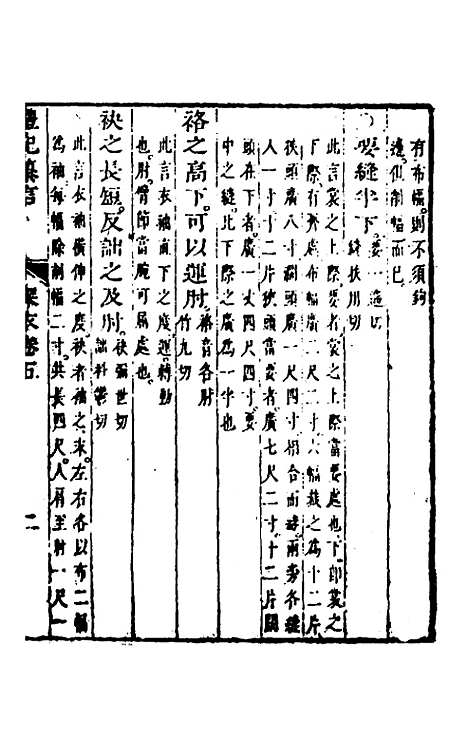 有布幅則不須鉤
邊但削幅而已
要縫半下要一遥切縫扶用切
此言裳之上際要者裳之上際當要處也下卽裳之
下際齊處布幅二尺二寸六幅裁之爲十二片
狹頭廣八寸濶頭廣一尺四寸相合而縫兩旁各縫
入一寸十二片狹頭當要者廣七尺二寸十二片闊
頭在下者廣一丈四尺四寸要
中之縫比下際之廣爲一半也
袼之高下可以運肘袼音各肘竹九切
此言衣袖直下之度運轉動
也肘臂節當腕可屈處也
袂之長短反詘之及肘袂彌世切詘切
此言衣袖橫伸之度袂者袖之末左右各以布二幅
爲袖每幅除削幅二寸共長四尺人肩至肘一尺一
禮記纂言
深衣卷五
二